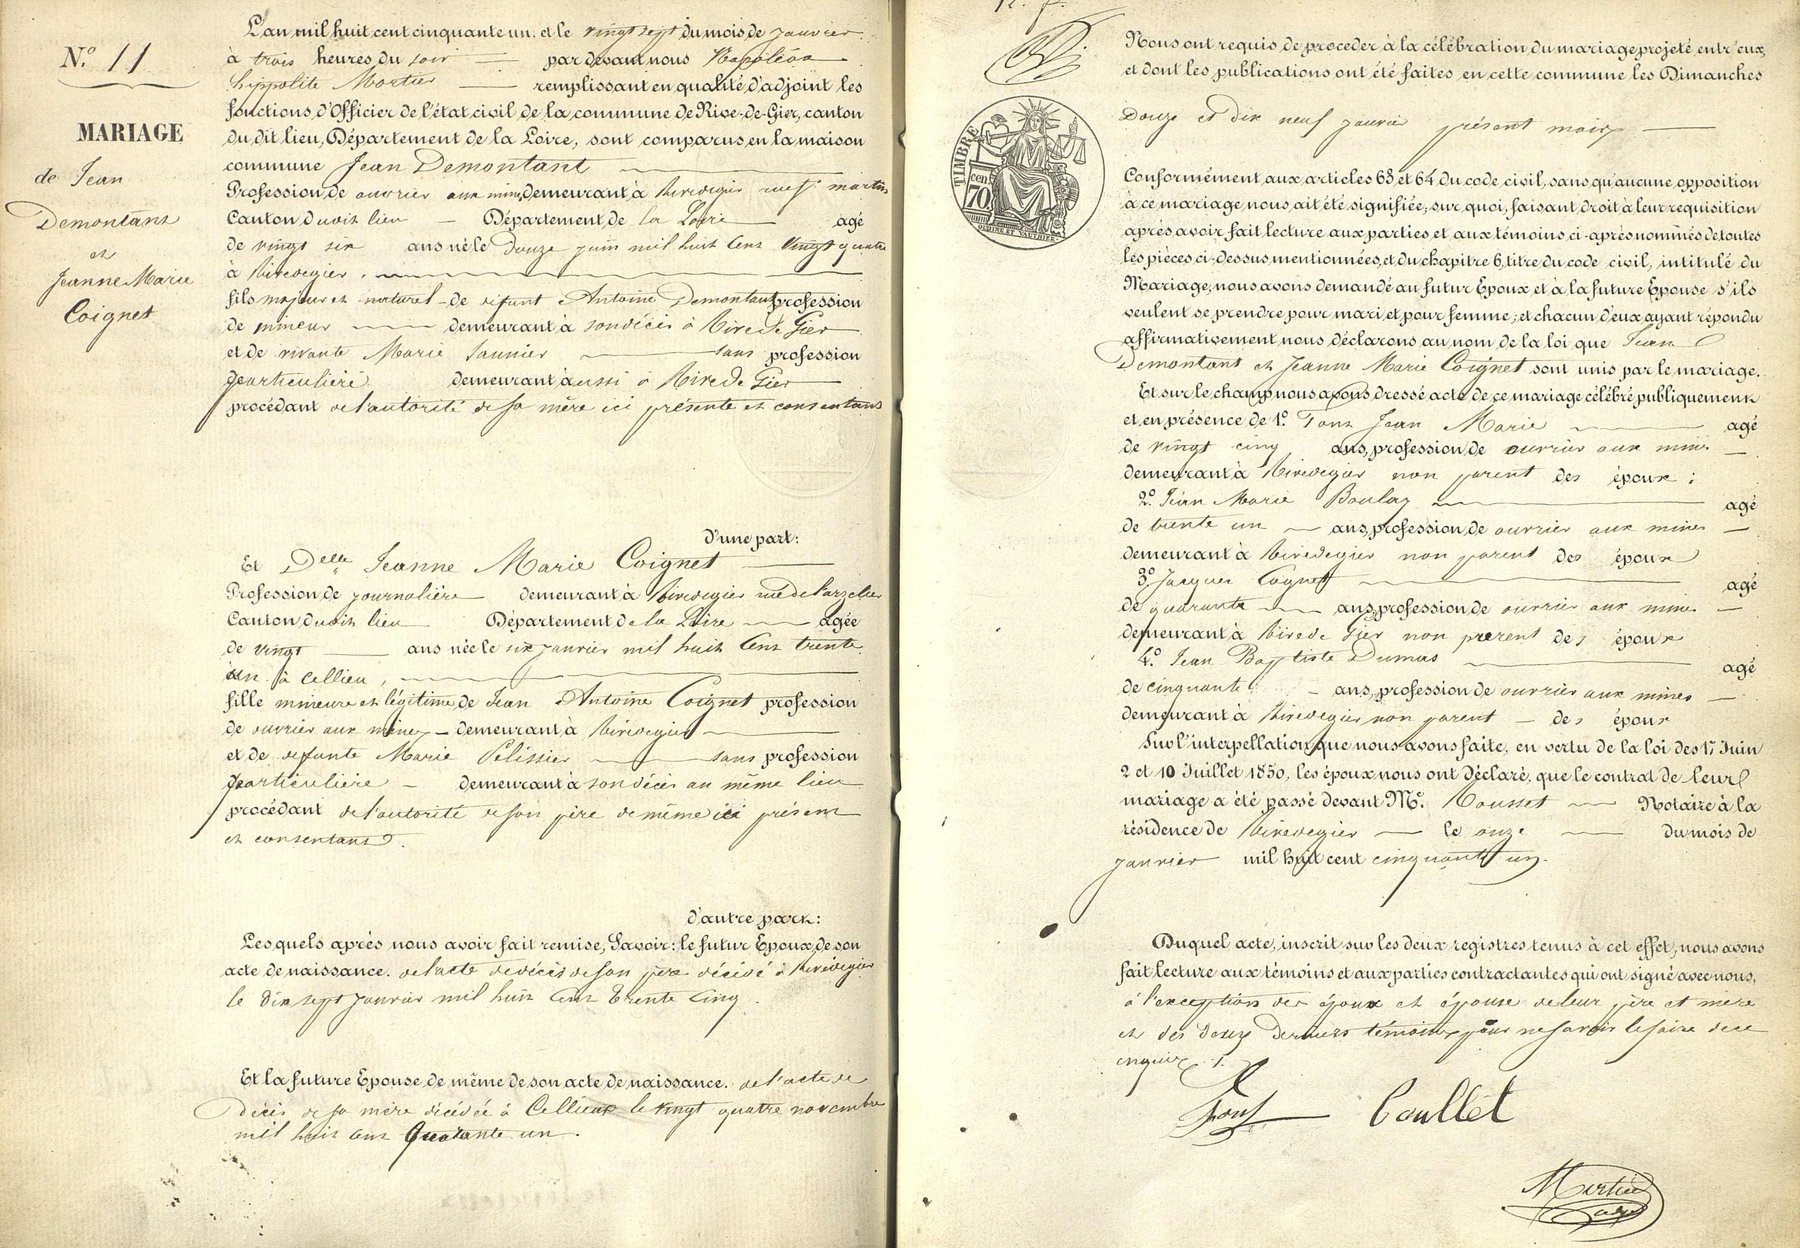 N.° 11
MARIAGE
de Jean
Demontant
et
Jeanne Marie
Coignet
L'an mil huit cent cinquante un. et le vingt sept du mois de janvier
à trois heures du soir par devant nous Napoléon
hippolite Mortier remplissant en qualité d'adjoint les
fonctions d'Officier de l'état civil de la commune de Rive-de-Gier, canton
du dit lieu, Département de la Loire, sont comparus en la maison
commune Jean Demontant
Profession de ouvrier aux mines demeurant à Rivedegier rue St martin
Canton dudit lieu Département de la Loire agé
de vingt six ans né le Douze juin mil huit cent vingt quatre
à Rivedegier.
fils majeur et naturel de défunt Antoine Demontant profession
de mineur demeurant à son décès à Rive de Gier
et de vivante Marie Saunier sans profession
particulière demeurant aussi à Rive de Gier
procédant de l'autorité de sa mère ici présente et consentant
d'une part:
Et Delle Jeanne Marie Coignet
Profession de journalière demeurant à Rivedegier rue
Canton dudit lieu Département de la Loire agée
de vingt ans née le six janvier mil huit cent trente
un à Cellieu,
fille mineure et légitime de Jean Antoine Coignet profession
de ouvrier aux mines demeurant à Rivedegier
et de defunte Marie Pélissier sans profession
particulière demeurant à son décès au même lieu
procédant de l'autorité de son père de même ici présent
et consentant.
d'autre part:
Lesquels après nous avoir fait remise, Savoir: le futur Epoux, de son
acte de naissance. de l'acte de décès de son père décédé à Rivedegier
le dix sept janvier mil huit cent trente cinq.
Et la future Epouse, de même de son acte de naissance. de l'acte de
Décès de sa mère décédée à Cellieux le vingt quatre novembre
mil huit cent quarante un.
TIMBRE
70 cen
OUDINE ET GAUTHIER
Nous ont requis de procéder à la célébration du mariage projeté entr'eux,
et dont les publications ont été faites en cette commune les Dimanches
Douze et dix neuf janvier présent mois
Conformément aux articles 63 et 64 du code civil, sans qu'aucune opposition
à ce mariage nous ait été signifiée; sur quoi, faisant droit à leur requisition
après avoir fait lecture aux parties et aux témoins, ci-après nommés de toutes
les pièces ci-dessus mentionnées, et du chapitre 6, titre du code civil, intitulé du
Mariage, nous avons demandé au futur Epoux et à la future Epouse s'ils
veulent se prendre pour mari et pour femme; et chacun d'eux ayant répondu
affirmativement, nous déclarons au nom de la loi que Jean
Demontant et Jeanne Marie Coignet sont unis par le mariage.
Et sur le champ nous avons dressé acte de ce mariage célébré publiquement
et en présence de 1.° Font Jean Marie agé
de vingt cinq ans, profession de ouvrier aux mines
demeurant à Rivedegier non parent des époux;
2.° Jean Marie agé
de trente un ans, profession de ouvrier aux mines
demeurant à Rivedegier non parent des époux
3.° Jacques Cognet agé
de quarante ans, profession de ouvrier aux mines
demeurant à Rive de Gier non parent des époux
4.° Jean Baptiste Dumas agé
de cinquante ans, profession de ouvrier aux mines
demeurant à Rivedegier non parent des époux
Sur l'interpellation que nous avons faite, en vertu de la loi des 17 Juin
2 et 10 Juillet 1850, les époux nous ont déclaré, que le contrat de leur
mariage a été passé devant M.e Rousset Notaire à la
résidence de Rivedegier le onze du mois de
janvier mil huit cent cinquante un.
Duquel acte, inscrit sur les deux registres tenus à cet effet, nous avons
fait lecture aux témoins et aux parties contractantes qui ont signé avec nous,
à l'exception des époux et épouse de leur père et mère
et des deux derniers témoins pour ne savoir le faire de ce
enquis.
Font Boullet
Mortier